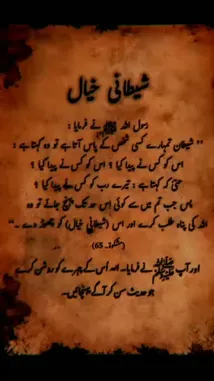 شیطانی خیال
رسول اللہ ﷺ نے فرمایا :
" شیطان تمہارے کسی شخص کے پاس آتا ہے تو وہ کہتا ہے :
اس کو کس نے پیدا کیا ؟ اس کو کس نے پیدا کیا ؟
حتیٰ کہ کہتا ہے : تیرے رب کو کس نے پیدا کیا ؟
پس جب تم میں سے کوئی اس حد تک پہنچ جائے تو وہ
اللہ کی پناہ طلب کرے اور اس (شیطانی خیال) کو چھوڑ دے ۔"
(مشکوٰۃ 65)
اور آپ ﷺ نے فرمایا۔ اللہ اُس کے چہرے کو روشن کرے
جو حدیث سن کر آگے پہنچاتا ہیں۔